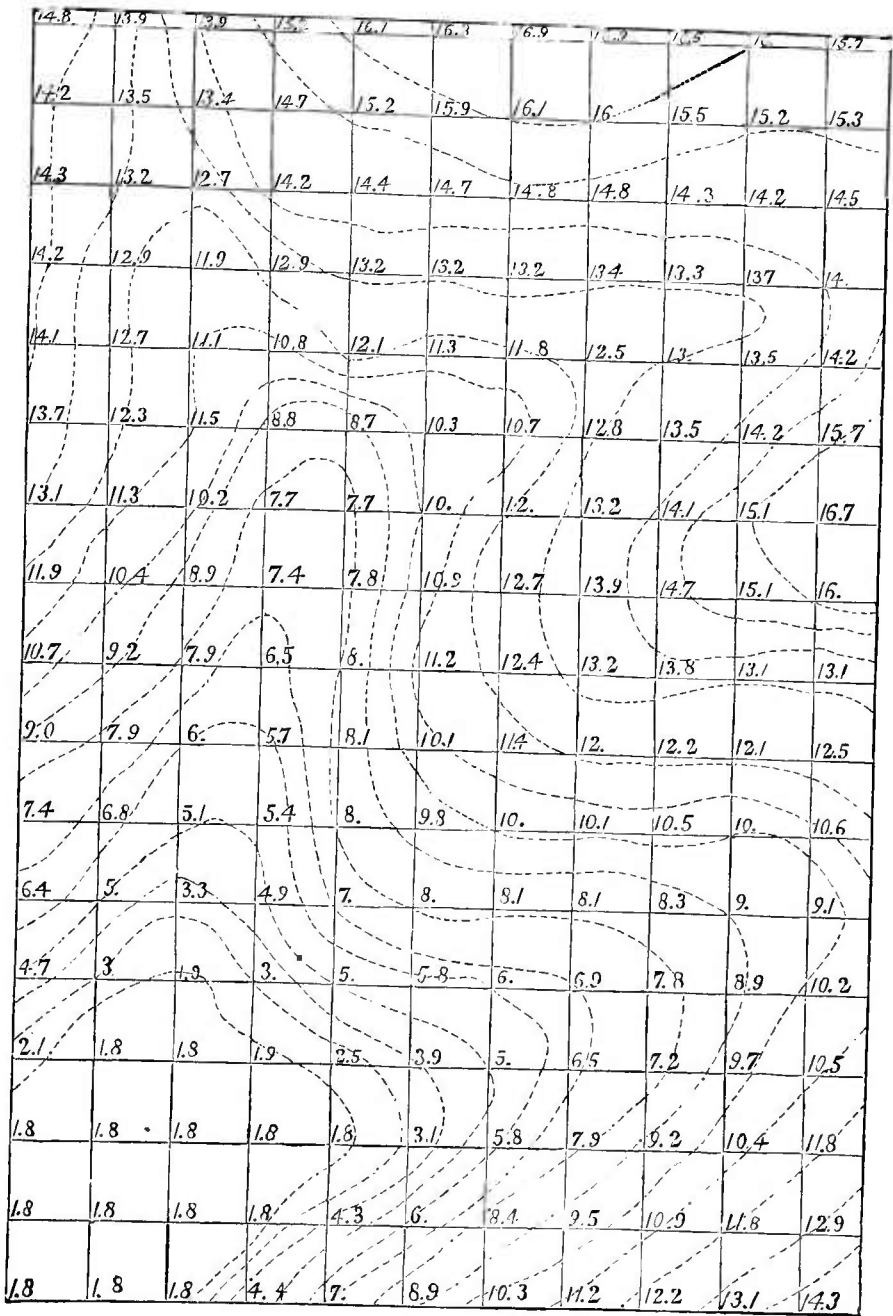 14.8 13.9 13.9 16.1 16.3 16.9 15.7
14.2 13.5 13.4 14.7 15.2 15.9 16.1 16. 15.5 15.2 15.3
14.3 13.2 12.7 14.2 14.4 14.7 14.8 14.8 14.3 14.2 14.5
14.2 12.9 11.9 12.9 13.2 13.2 13.2 13.4 13.3 137 14.
14.1 12.7 11.1 10.8 12.1 11.3 11.8 12.5 13. 13.5 14.2
13.7 12.3 11.5 8.8 8.7 10.3 10.7 12.8 13.5 14.2 15.7
13.1 11.3 10.2 7.7 7.7 10. 12. 13.2 14.1 15.1 16.7
11.9 10.4 8.9 7.4 7.8 10.9 12.7 13.9 14.7 15.1 16.
10.7 9.2 7.9 6.5 8. 11.2 12.4 13.2 13.8 13.1 13.1
9.0 7.9 6. 5.7 8.1 10.1 11.4 12. 12.2 12.1 12.5
7.4 6.8 5.1 5.4 8. 9.8 10. 10.1 10.5 10. 10.6
6.4 5. 3.3 4.9 7. 8. 8.1 8.1 8.3 9. 9.1
4.7 3 1.9 3. 5. 5.8 6. 6.9 7.8 8.9 10.2
2.1 1.8 1.8 1.9 2.5 3.9 5. 6.5 7.2 9.7 10.5
1.8 1.8 1.8 1.8 1.8 3.1 5.8 7.9 9.2 10.4 11.8
1.8 1.8 1.8 1.8 4.3 6. 8.4 9.5 10.9 11.8 12.9
1.8 1.8 1.8 4.4 7. 8.9 10.3 11.2 12.2 13.1 14.3